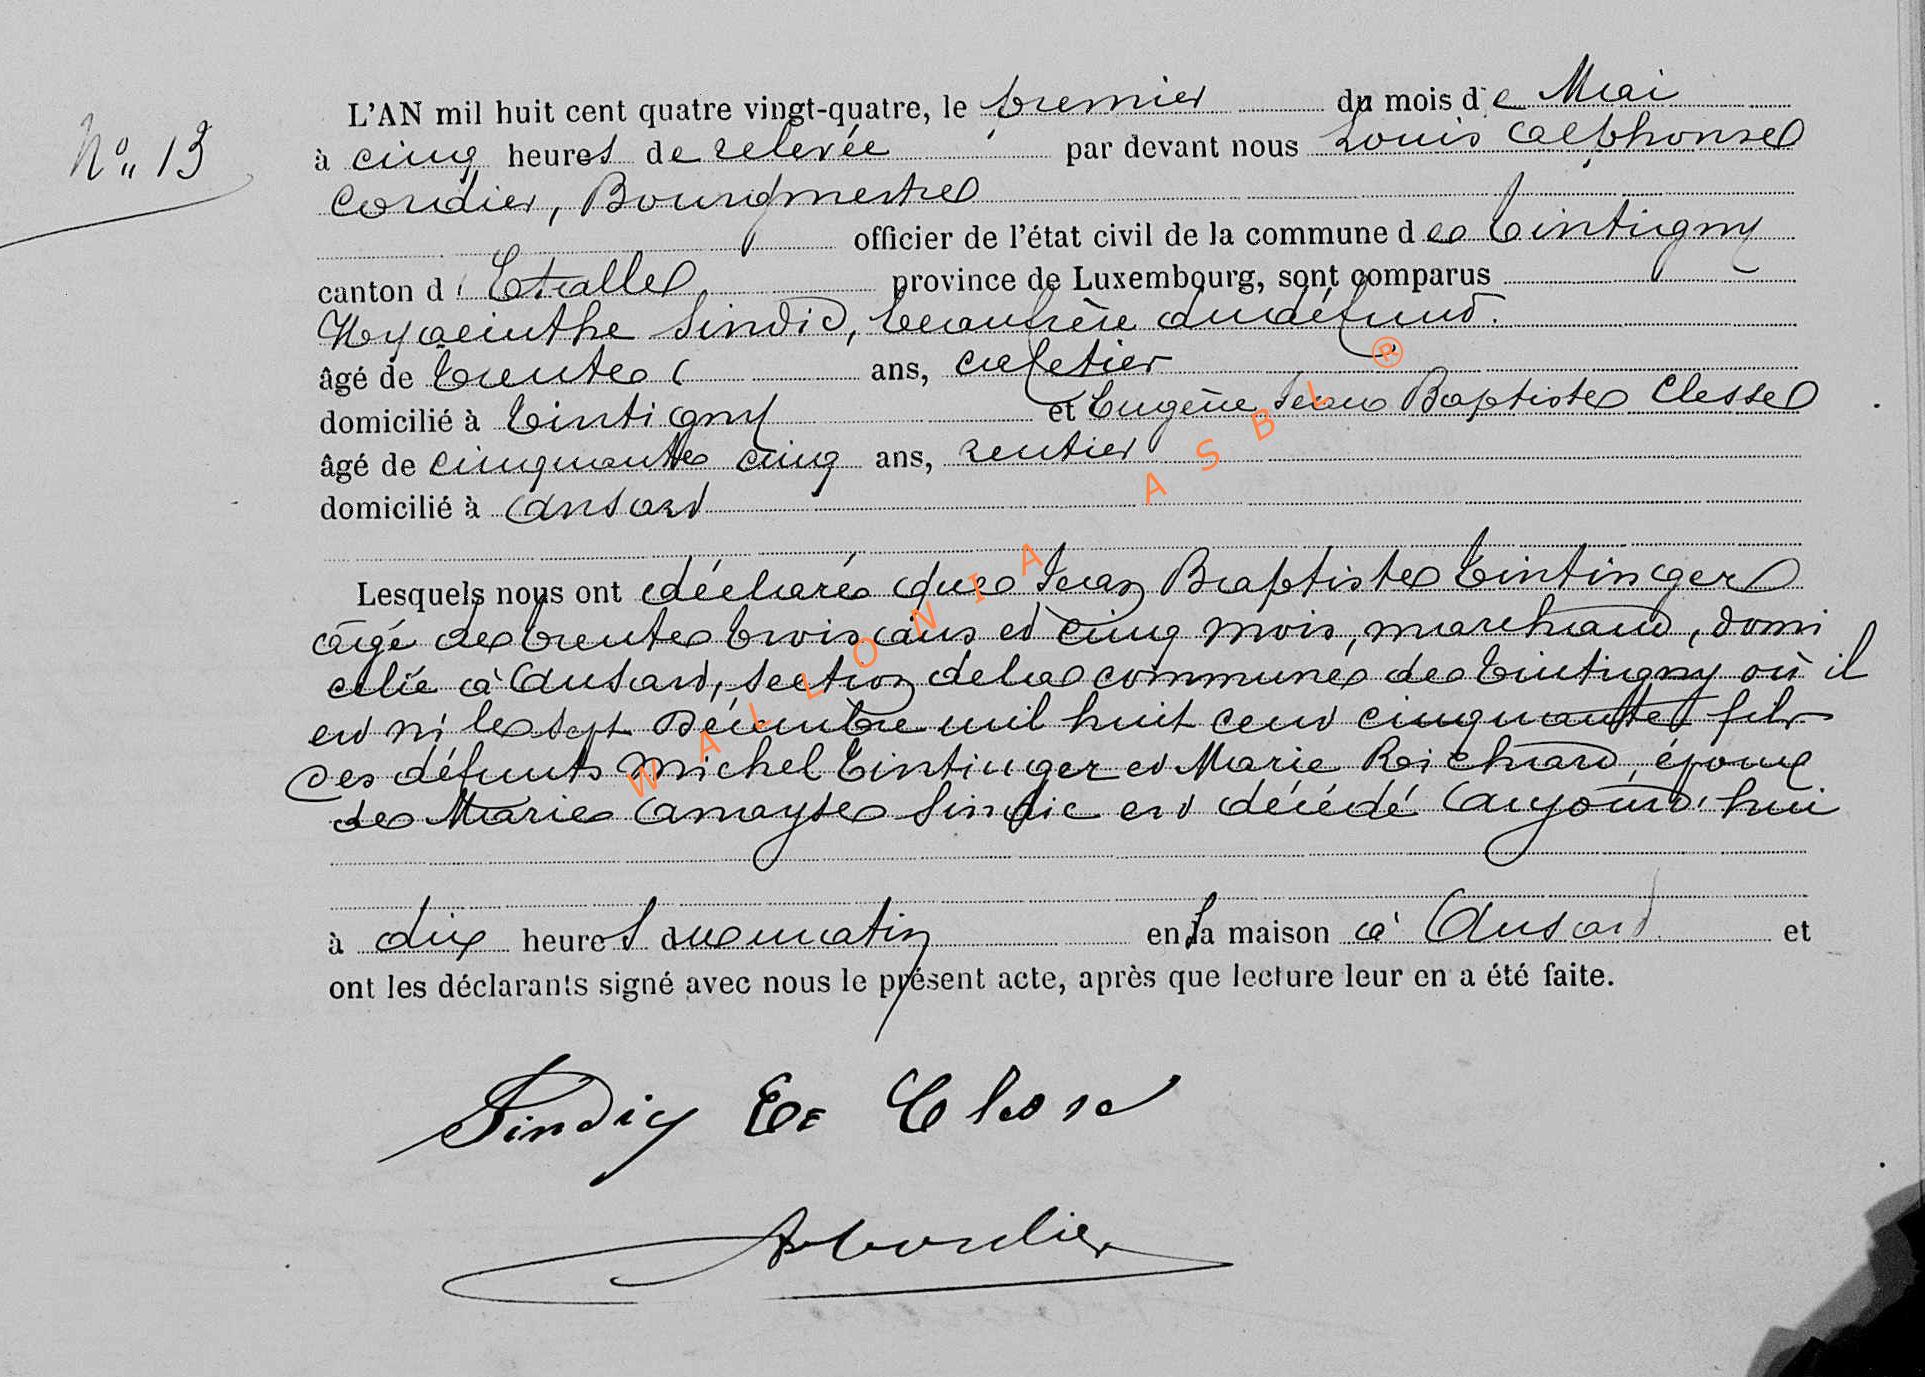 N° 13
L'AN mil huit cent quatre vingt-quatre, le premier du mois de Mai
à cinq heures de relevée par devant nous Louis Alphonse
Cordier, Bourgmestre
officier de l'état civil de la commune de Tintigny
canton d'Etalle province de Luxembourg, sont comparus
Hyacinthe Sindic, beaufrère du défunt.
âgé de trente ans, cafetier
domicilié à Tintigny et Eugène Jean Baptiste Clesse
âgé de cinquante cinq ans, rentier
domicilié à Ansart
Lesquels nous ont déclaré que Jean Baptiste Tintinger
âgé de trente trois ans et cinq mois, marchand, domi
cilié à Ansart, section de la commune de Tintigny où il
est né le sept Décembre mil huit cent cinquante, fils
des défunts Michel Tintinger et Marie Reichard, époux
de Marie Amayse Sindic est décédé aujourd'hui
à dix heures du matin en sa maison à Ansart et
ont les déclarants signé avec nous le présent acte, après que lecture leur en a été faite.
Sindic E. Clesse
A Cordier
WALLONIA ASBL ®